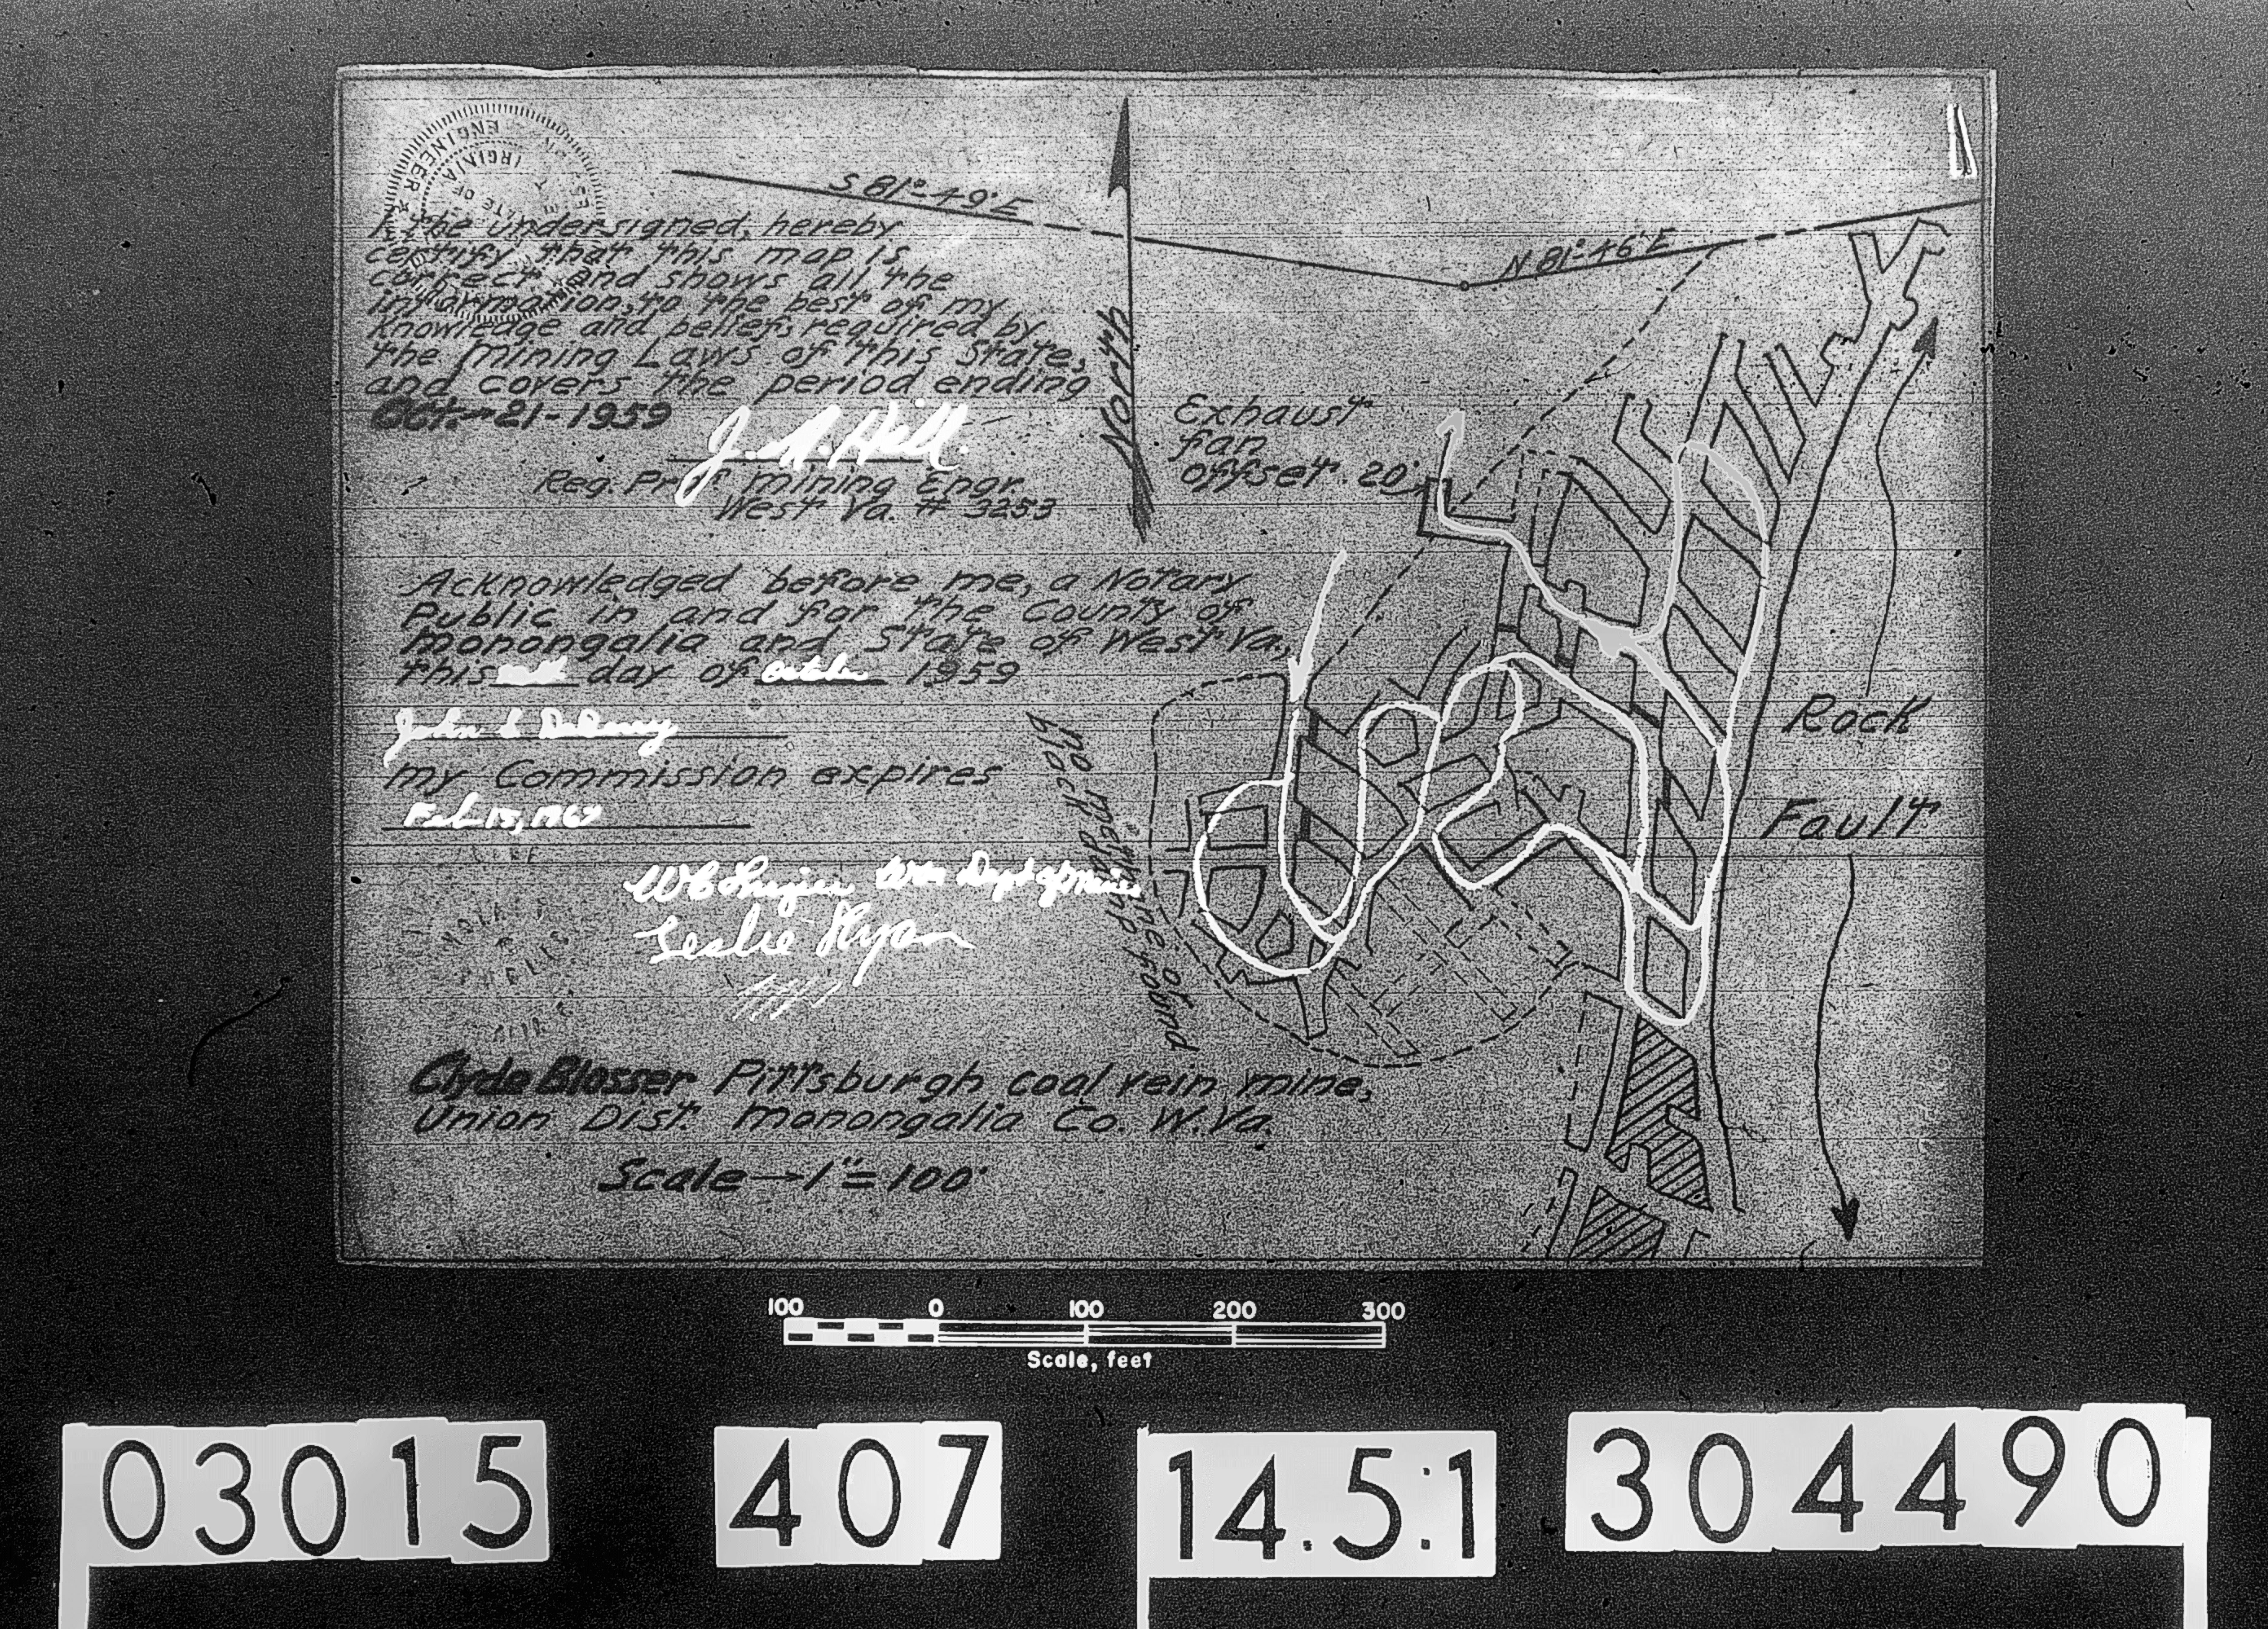 ENGINEER
I the undersigned, hereby
certify that this map is
correct and shows all the
information, to the best of my
knowledge and belief, required by
the Mining Laws of this State,
and covers the period ending
Oct. 21-1959
Reg. Prof Mining Engr.
West Va. # 3253
Acknowledged before me, a Notary
Public in and for the County of
Monongalia and State of West Va.,
this day of 1959
My Commission expires
Feb 15, 1967
Dept of Mines
Leslie Ryan
Clyde Blosser Pittsburgh coal vein mine,
Union Dist. Monongalia Co. W.Va.
Scale→1"=100'
S 81°-49'E
N 81°-46'E
North
Exhaust
fan
offset 20'
Rock
Fault
100 0 100 200 300
Scale, feet
03015 407 14.5:1 304490